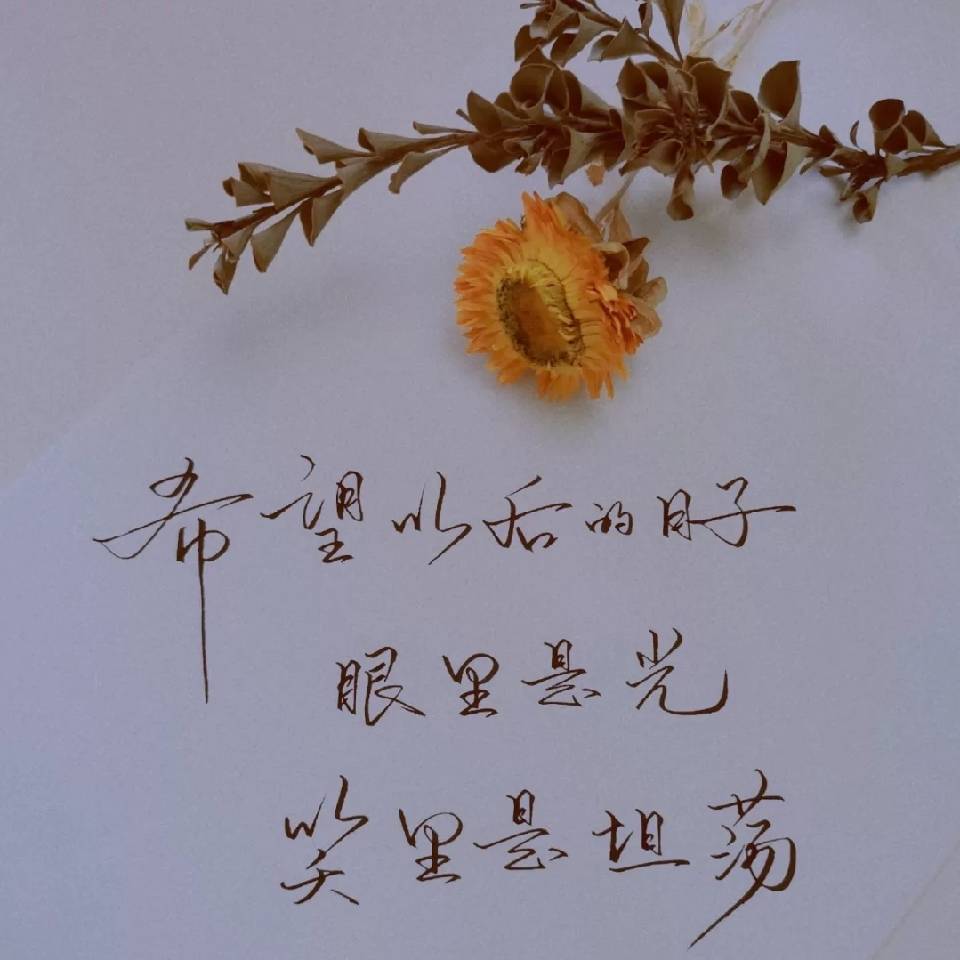 希望以后的日子
眼里是光
笑里是坦荡